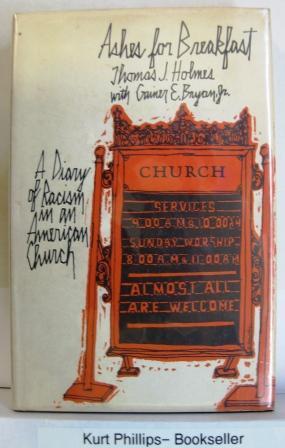 Ashes for Breakfast
Thomas J. Holmes
with Gainer E. Bryan, Jr.
A Diary
of Racism
in an
American
Church
CHURCH
SERVICES
9:00 A M & 10:00 A M
SUNDAY WORSHIP
8:00 A M & 11:00 A M
ALMOST ALL
ARE WELCOME
Kurt Phillips– Bookseller